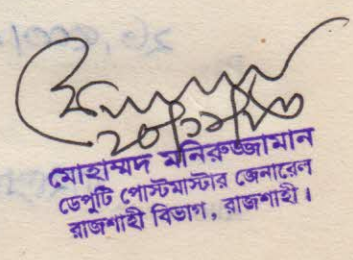 মোহাম্মদ মনিরুজ্জামান
ডেপুটি পোস্টমাস্টার জেনারেল
রাজশাহী বিভাগ, রাজশাহী।